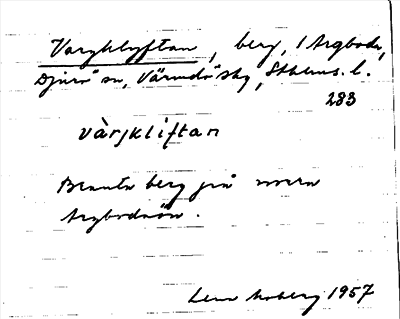 Vargklyftan, berg, / Argboda,
Djurö sn, Värmdö skg, Sthlms. l.
283
vàrjkliftan
Branta berg på norra
Argbodaön.
Lena Moberg 1957